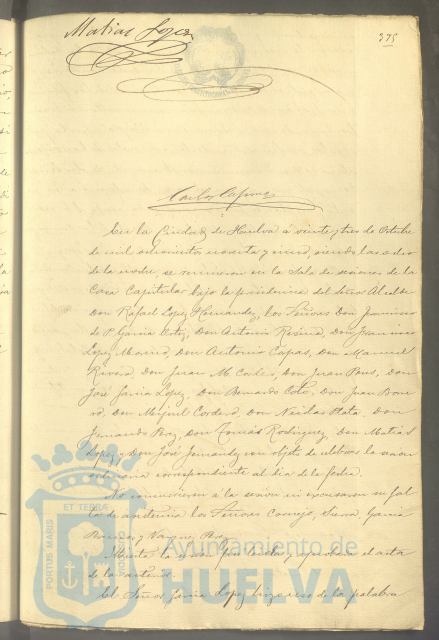 Matias Lopez
375
Carlos
En la Ciudad de Huelva á veinte y tres de Octubre
de mil ochocientos noventa y nueve, siendo las ocho
de la noche, se reunieron en la Sala de sesiones de la
Casa Capitular bajo la presidencia del Señor Alcalde
Don Rafael Lopez Hernandez, los Señores Don Francisco
de P. Garcia Ortiz, Don Antonio Don Francisco
Lopez Moreno, Don Antonio Don Manuel
Rivera, Don Juan M. Cortes, Don Juan Pons, Don
José Garcia Lopez, Don Bernardo Don Juan
Don Miguel Cordero, Don Nicolas Mata, Don
Fernando Don Tomás Rodriguez, Don Matias
Lopez y Don José Fernandez con objeto de celebrar la sesion
ordinaria correspondiente al dia de la fecha.
No concurrieron á la sesion ni excusaron su fal-
ta de asistencia los Señores Cornejo, Garcia
y Vazquez
Abierta la sesion fué leida y aprobada el acta
de la anterior.
El Señor Garcia Lopez hizo uso de la palabra
ET TERRA
PORTUS MARIS
Ayuntamiento de
HUELVA